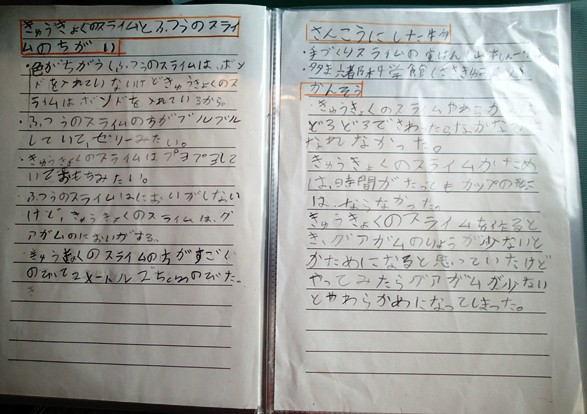 きゅうきょくのスライムとふつうのスライ
ムのちがい
・色がちがう(ふつうのスライムは、ボン
ドを入れていないけどきゅうきょくのス
ライムはボンドを入れているから。
・ふつうのスライムのちがブルブル
していて、ゼリーみたい。
・きゅうきょくのスライムはプヨプヨして
いておもちみたい。
・ふつうのスライムはにおいがしない
けど、きゅうきょくのスライムは、グ
アガムのにおいがする。
・きゅうきょくのスライムの方がすごく
のびて2メートル
のびた。
さんこうにした
・手づくりスライムの
かんそう
きゅうきょくのスライムやわ
どろどろでさわったら
なれなかった。
きゅうきょくのスライムかため
は、時間がたってもカップの形に
は、ならなかった。
きゅうきょくのスライムを作ると
き、グアガムのりょうが少ないと
かためになると思っていたけど
やってみたらグアガムが少ない
とやわらかめになってしまった。